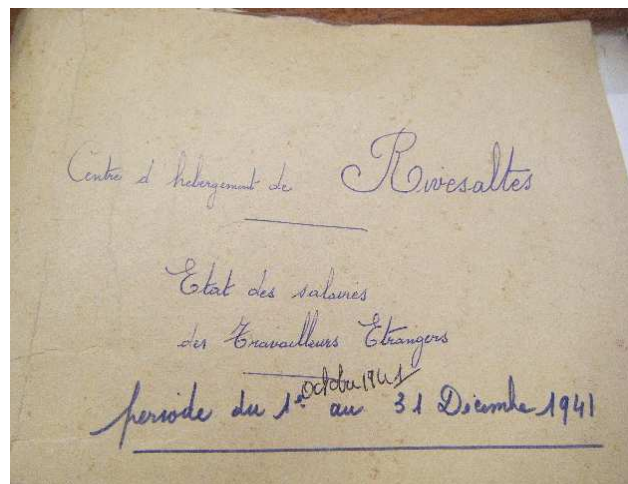 Centre d'hébergement de Rivesaltes
Etat des salaires
des Travailleurs Etrangers
octobre 1941
periode du 1er au 31 Décembre 1941